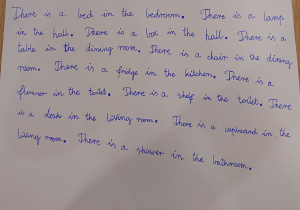 There is a bed in the bedroom. There is a lamp
in the hall. There is a box in the hall. There is a
table in the dining room. There is a chair in the dining
room. There is a fridge in the kitchen. There is a
flower in the toilet. There is a shelf in the toilet. There
is a desk in the living room. There is a cupboard in the
living room. There is a shower in the bathroom.